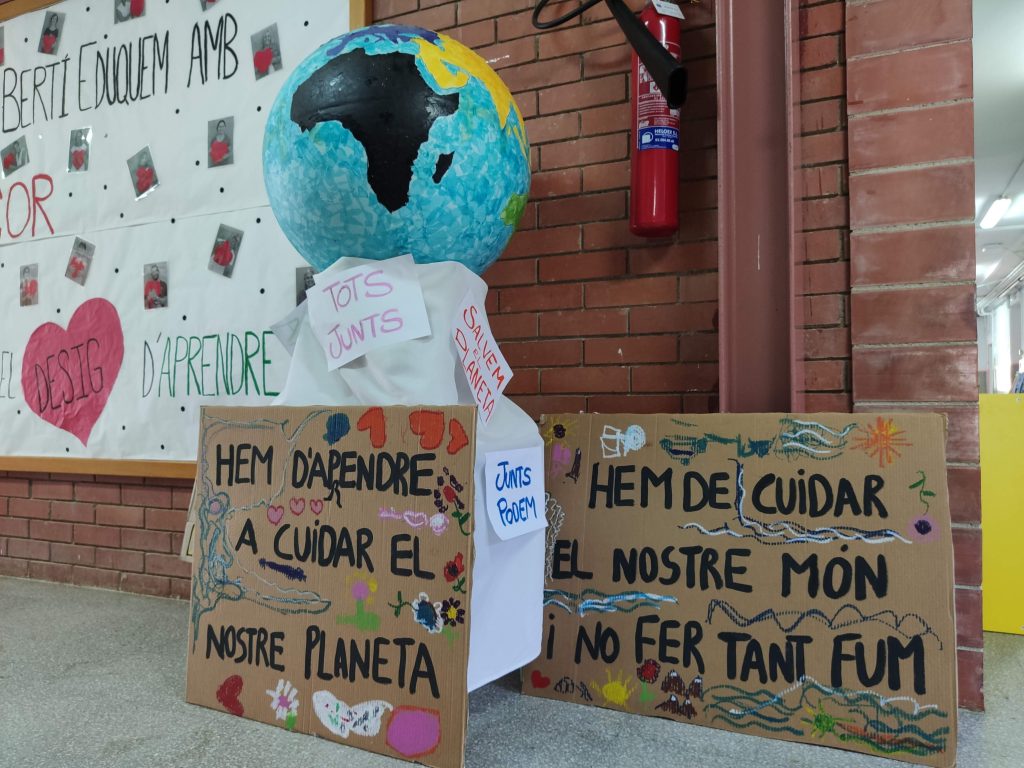 BERTÍ EDUQUEM AMB
COR
EL DESIG D'APRENDRE
TOTS
JUNTS
SALVEM
EL
PLANETA
JUNTS
PODEM
HEM D'APENDRE
R
A CUIDAR EL
NOSTRE PLANETA
HEM DE CUIDAR
EL NOSTRE MÓN
i NO FER TANT FUM